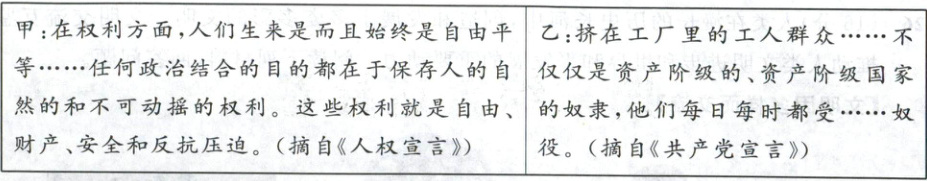 甲:在权利方面,人们生来是而且始终是自由平
等……任何政治结合的目的都在于保存人的自
然的和不可动摇的权利。这些权利就是自由、
财产、安全和反抗压迫。(摘自《人权宣言》)
乙:挤在工厂里的工人群众……不
仅仅是资产阶级的、资产阶级国家
的奴隶,他们每日每时都受……奴
役。(摘自《共产党宣言》)